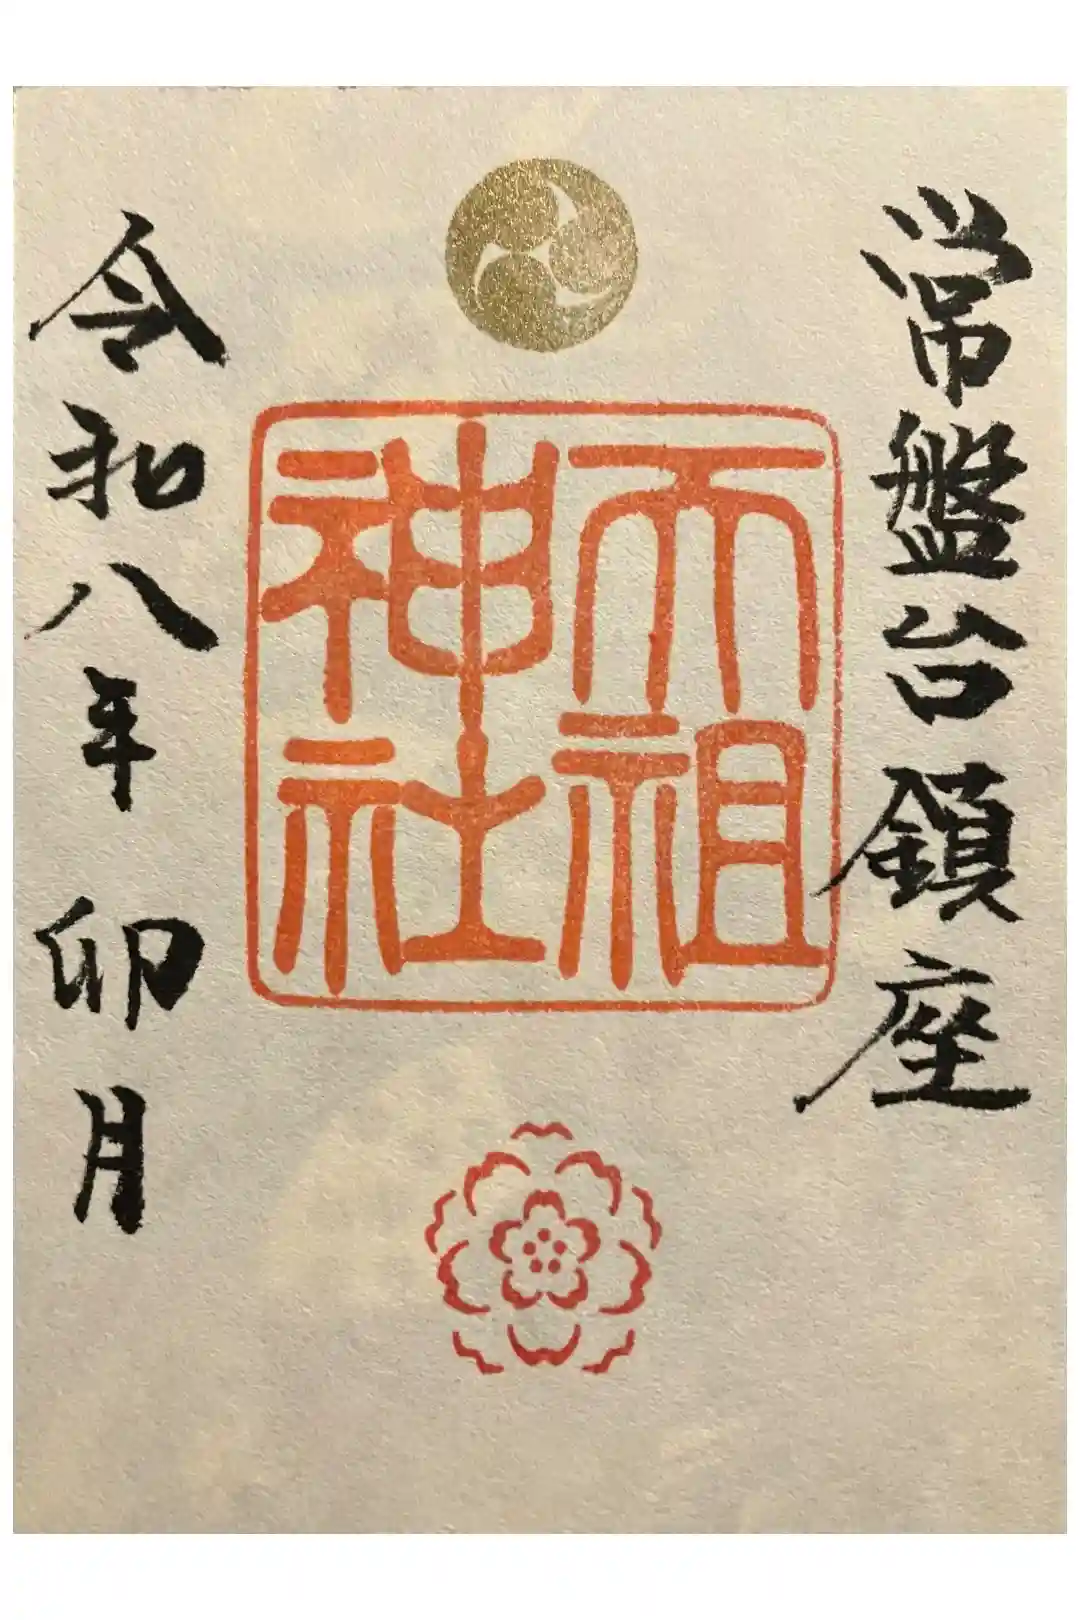 常盤台鎮座
天祖
神社
令和八年 卯月